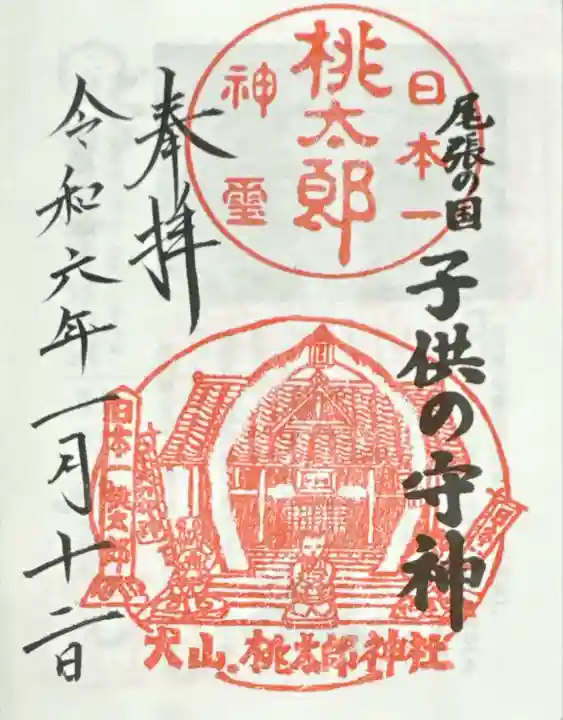 尾張の国
子供の守神
日本一
桃太郎
神璽
奉拝
令和六年一月十二日
日本一桃太郎
犬山・桃太郎神社